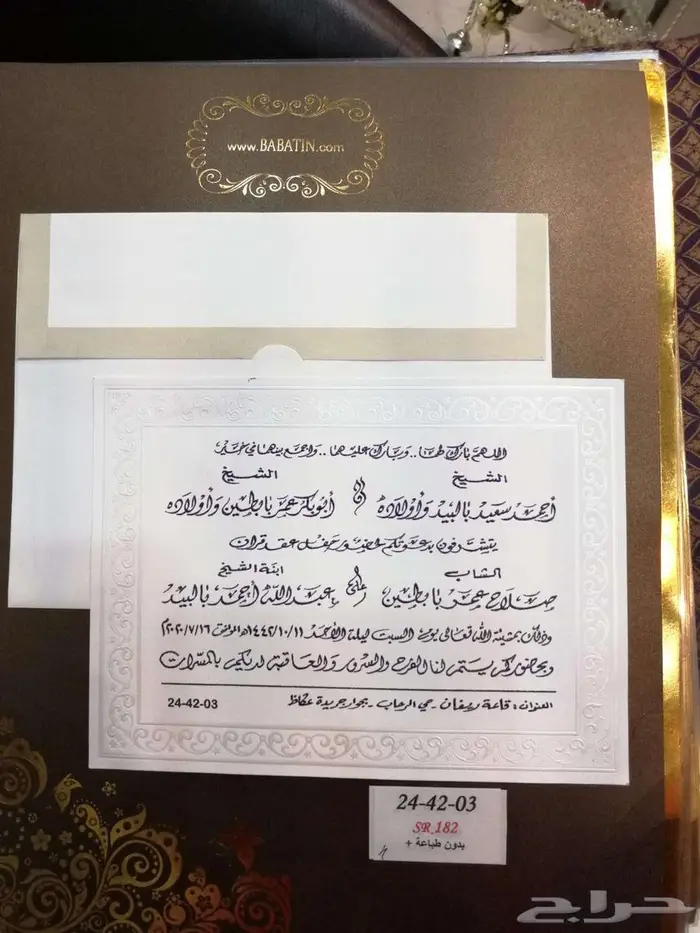 www.BABATIN.com
اللهم بارك لهما .. وبارك عليهما .. واجمع بينهما في خير
الشيخ الشيخ
أحمد سعيد بالبيد وأولاده و أبوبكر عمر بابطين وأولاده
يتشرفون بدعوتكم لحضور حفل عقد قران
الشاب ابنة الشيخ
صلاح عمر بابطين على عبدالله أحمد بالبيد
وذلك بمشيئة الله تعالى يوم السبت ليلة الأحد ١٤٤٢/١٠/١١هـ الموافق ٢٠٢٠/٧/١٦م
وبحضوركم يتم لنا الفرح والسرور والعاقبة لديكم بالمسرات
العنوان : قاعة - حي الرحاب - بجوار جريدة عكاظ 24-42-03
24-42-03
SR 182
بدون طباعة +
حراج